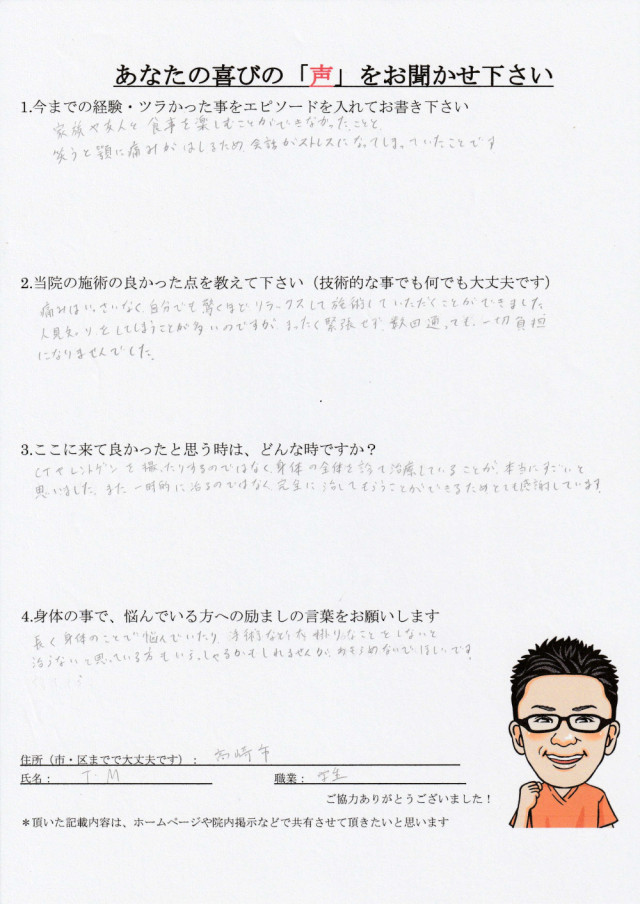 あなたの喜びの「声」をお聞かせ下さい
1.今までの経験・ツラかった事をエピソードを入れてお書き下さい
家族や友人と食事を楽しむことができなかったことと、
笑うと顎に痛みがはしるため会話がストレスになってしまっていたことです
2.当院の施術の良かった点を教えて下さい（技術的な事でも何でも大丈夫です）
痛みはいっさいなく、自分でも驚くほどリラックスして施術していただくことができました。
人見知りをしてしまうことが多いのですが、まったく緊張せず、数回通っても、一切負担
になりませんでした。
3.ここに来て良かったと思う時は、どんな時ですか？
CTやレントゲンを撮ったりするのではなく、身体の全体を診て治療していることが、本当にすごいと
思いました。また一時的に治るのではなく、完全に治してもらうことができるためとても感謝しています。
4.身体の事で、悩んでいる方への励ましの言葉をお願いします
長く身体のことで悩んでいたり、手術などの大掛りなことをしないと
治らないと思っている方もいらっしゃるかもしれませんが、あきらめないでほしいです。
住所（市・区までで大丈夫です）： 高崎市
氏名： T.M 職業： 学生
ご協力ありがとうございました！
＊頂いた記載内容は、ホームページや院内掲示などで共有させて頂きたいと思います